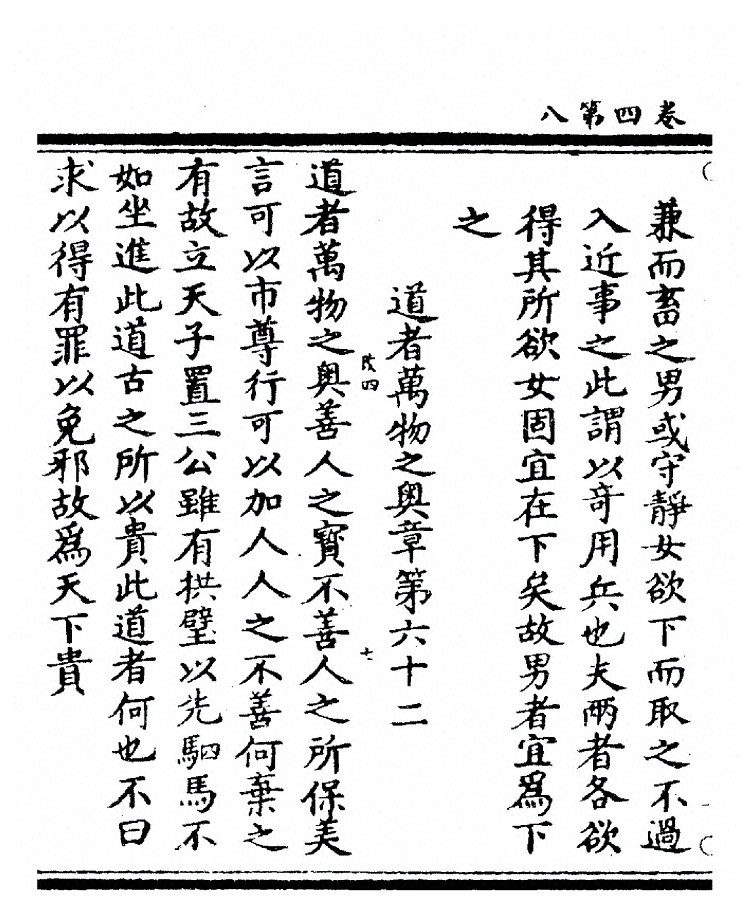 卷四第八
兼而畜之男或守靜女欲下而取之不過
入近事之此謂以奇用兵也夫兩者各欲
得其所欲女固宜在下矣故男者宜爲下
之
道者萬物之奧章第六十二
道者萬物之奧善人之寶不善人之所保美
言可以市尊行可以加人人之不善何棄之
有故立天子置三公雖有拱璧以先駟馬不
如坐進此道古之所以貴此道者何也不曰
求以得有罪以免邪故爲天下貴